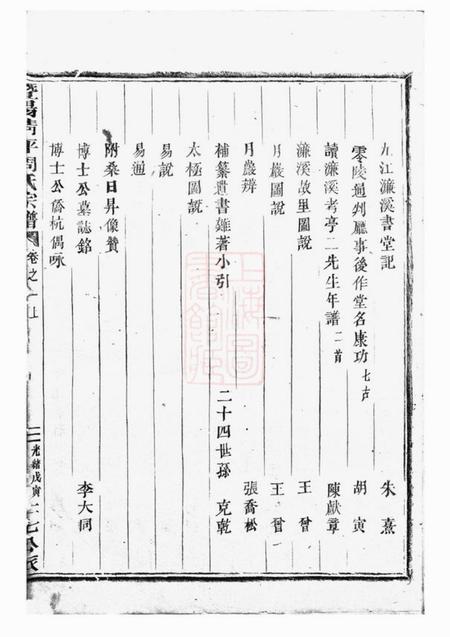 九江濂溪書堂記 朱熹
零陵通判廳事後作堂名康功 七古 胡寅
讀濂溪考亭二先生年譜 二首 陳獻章
濂溪故里圖說 王曾
月巖圖說 王曾
月巖辨 張喬松
補纂遺書雜著小引 二十四世孫 克乾
太極圖說
易說
易通
附桑日昇像贊
博士公墓誌銘 李大同
博士公僑杭偶咏
暨陽清平周氏宗譜 卷之一上
光緒戊寅